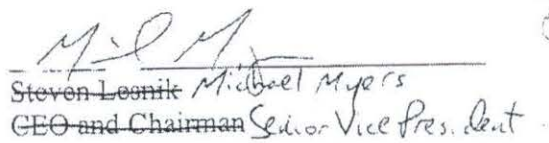 Steven Losnik Michael Myers
CEO and Chairman Senior Vice President